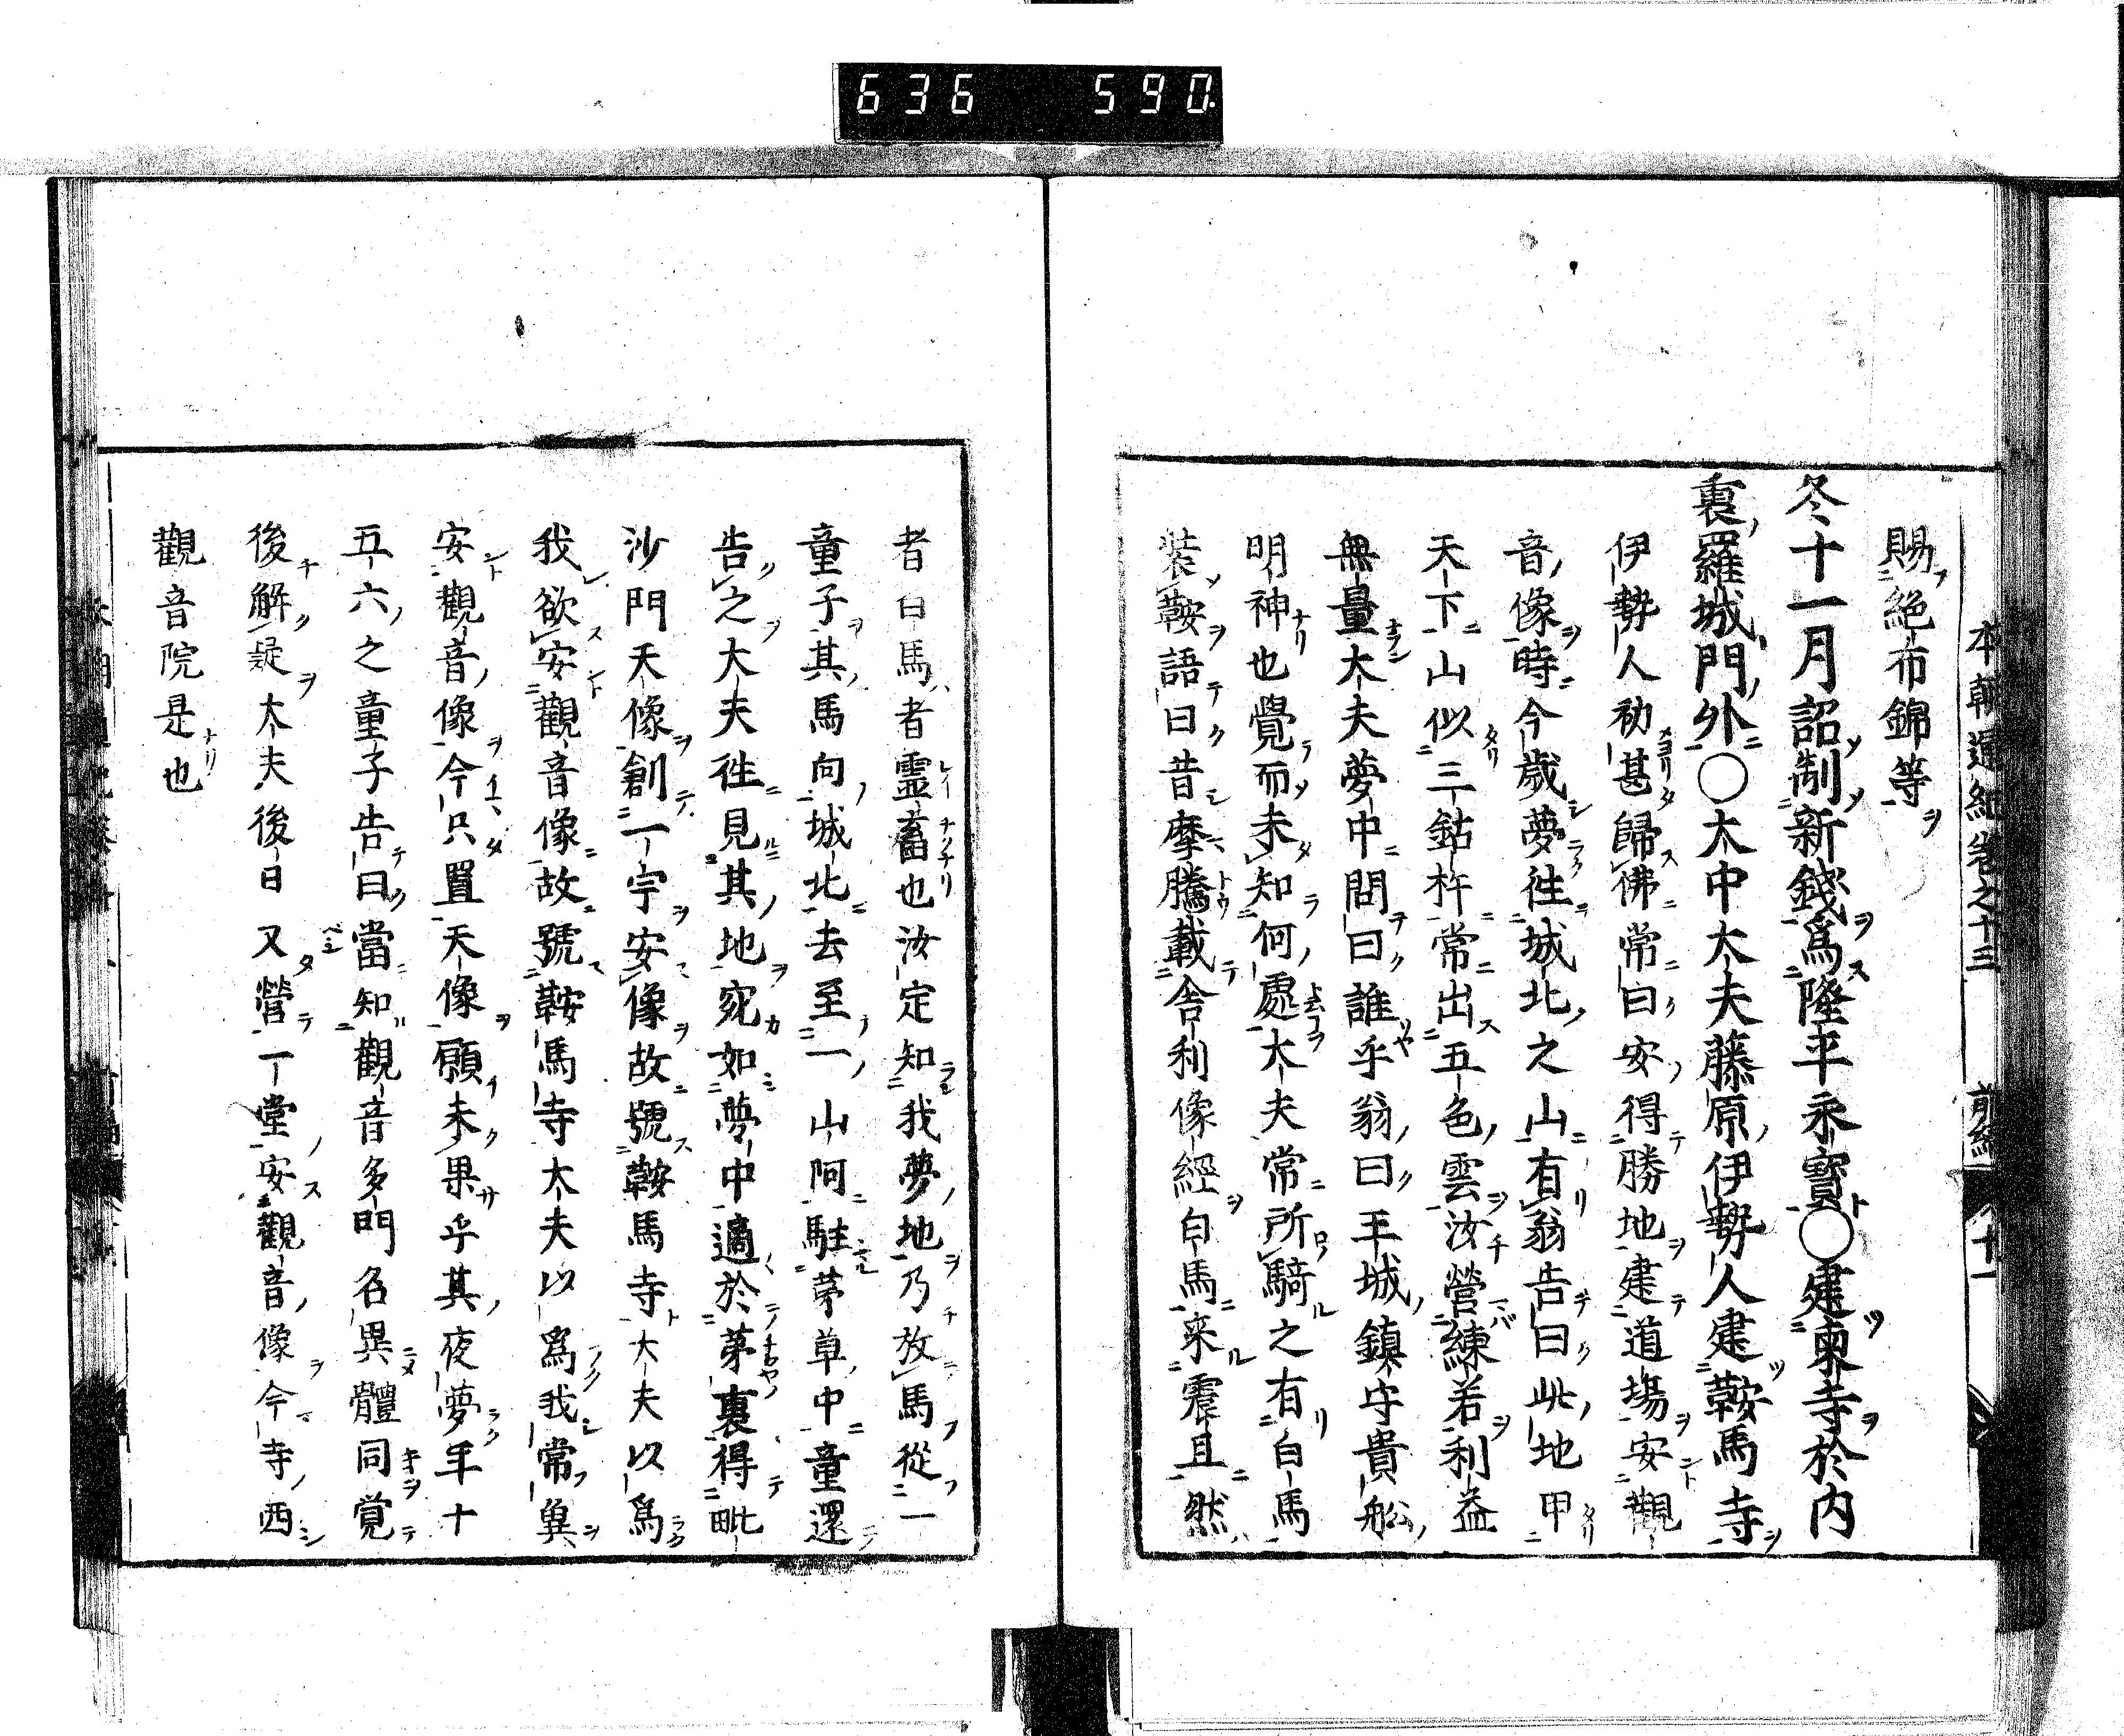 636 590
本朝通紀卷之十三 前編 十一
賜絁布錦等
冬十一月詔制新錢爲隆平永寶○建東寺於内
裏羅城門外○太中太夫藤原伊勢人建鞍馬寺
伊勢人初甚歸佛常曰安得勝地建道場安觀
音像時今歲夢徃城北之山有翁告曰此地甲
天下山似三鈷杵常出五色雲汝營練若利益
無量太夫夢中問曰誰乎翁曰王城鎮守貴舩
明神也覺而未知何處太夫常所騎之有白馬
裝鞍語曰昔摩騰載舎利像經白馬来震旦然
者白馬者霊畜也汝定知我夢地乃放馬從一
童子其馬向城北去至一山阿駐茅草中童還
告之大夫徃見其地宛如夢中適於茅裏得毗
沙門天像創一宇安像故號鞍馬寺大夫以爲
我欲安觀音像故號鞍馬寺大夫以爲我常兾
安觀音像今只置天像願未果乎其夜夢年十
五六之童子告曰當知觀音多門名異體同覚
後解疑太夫後日又營一堂安觀音像今寺西
觀音院是也